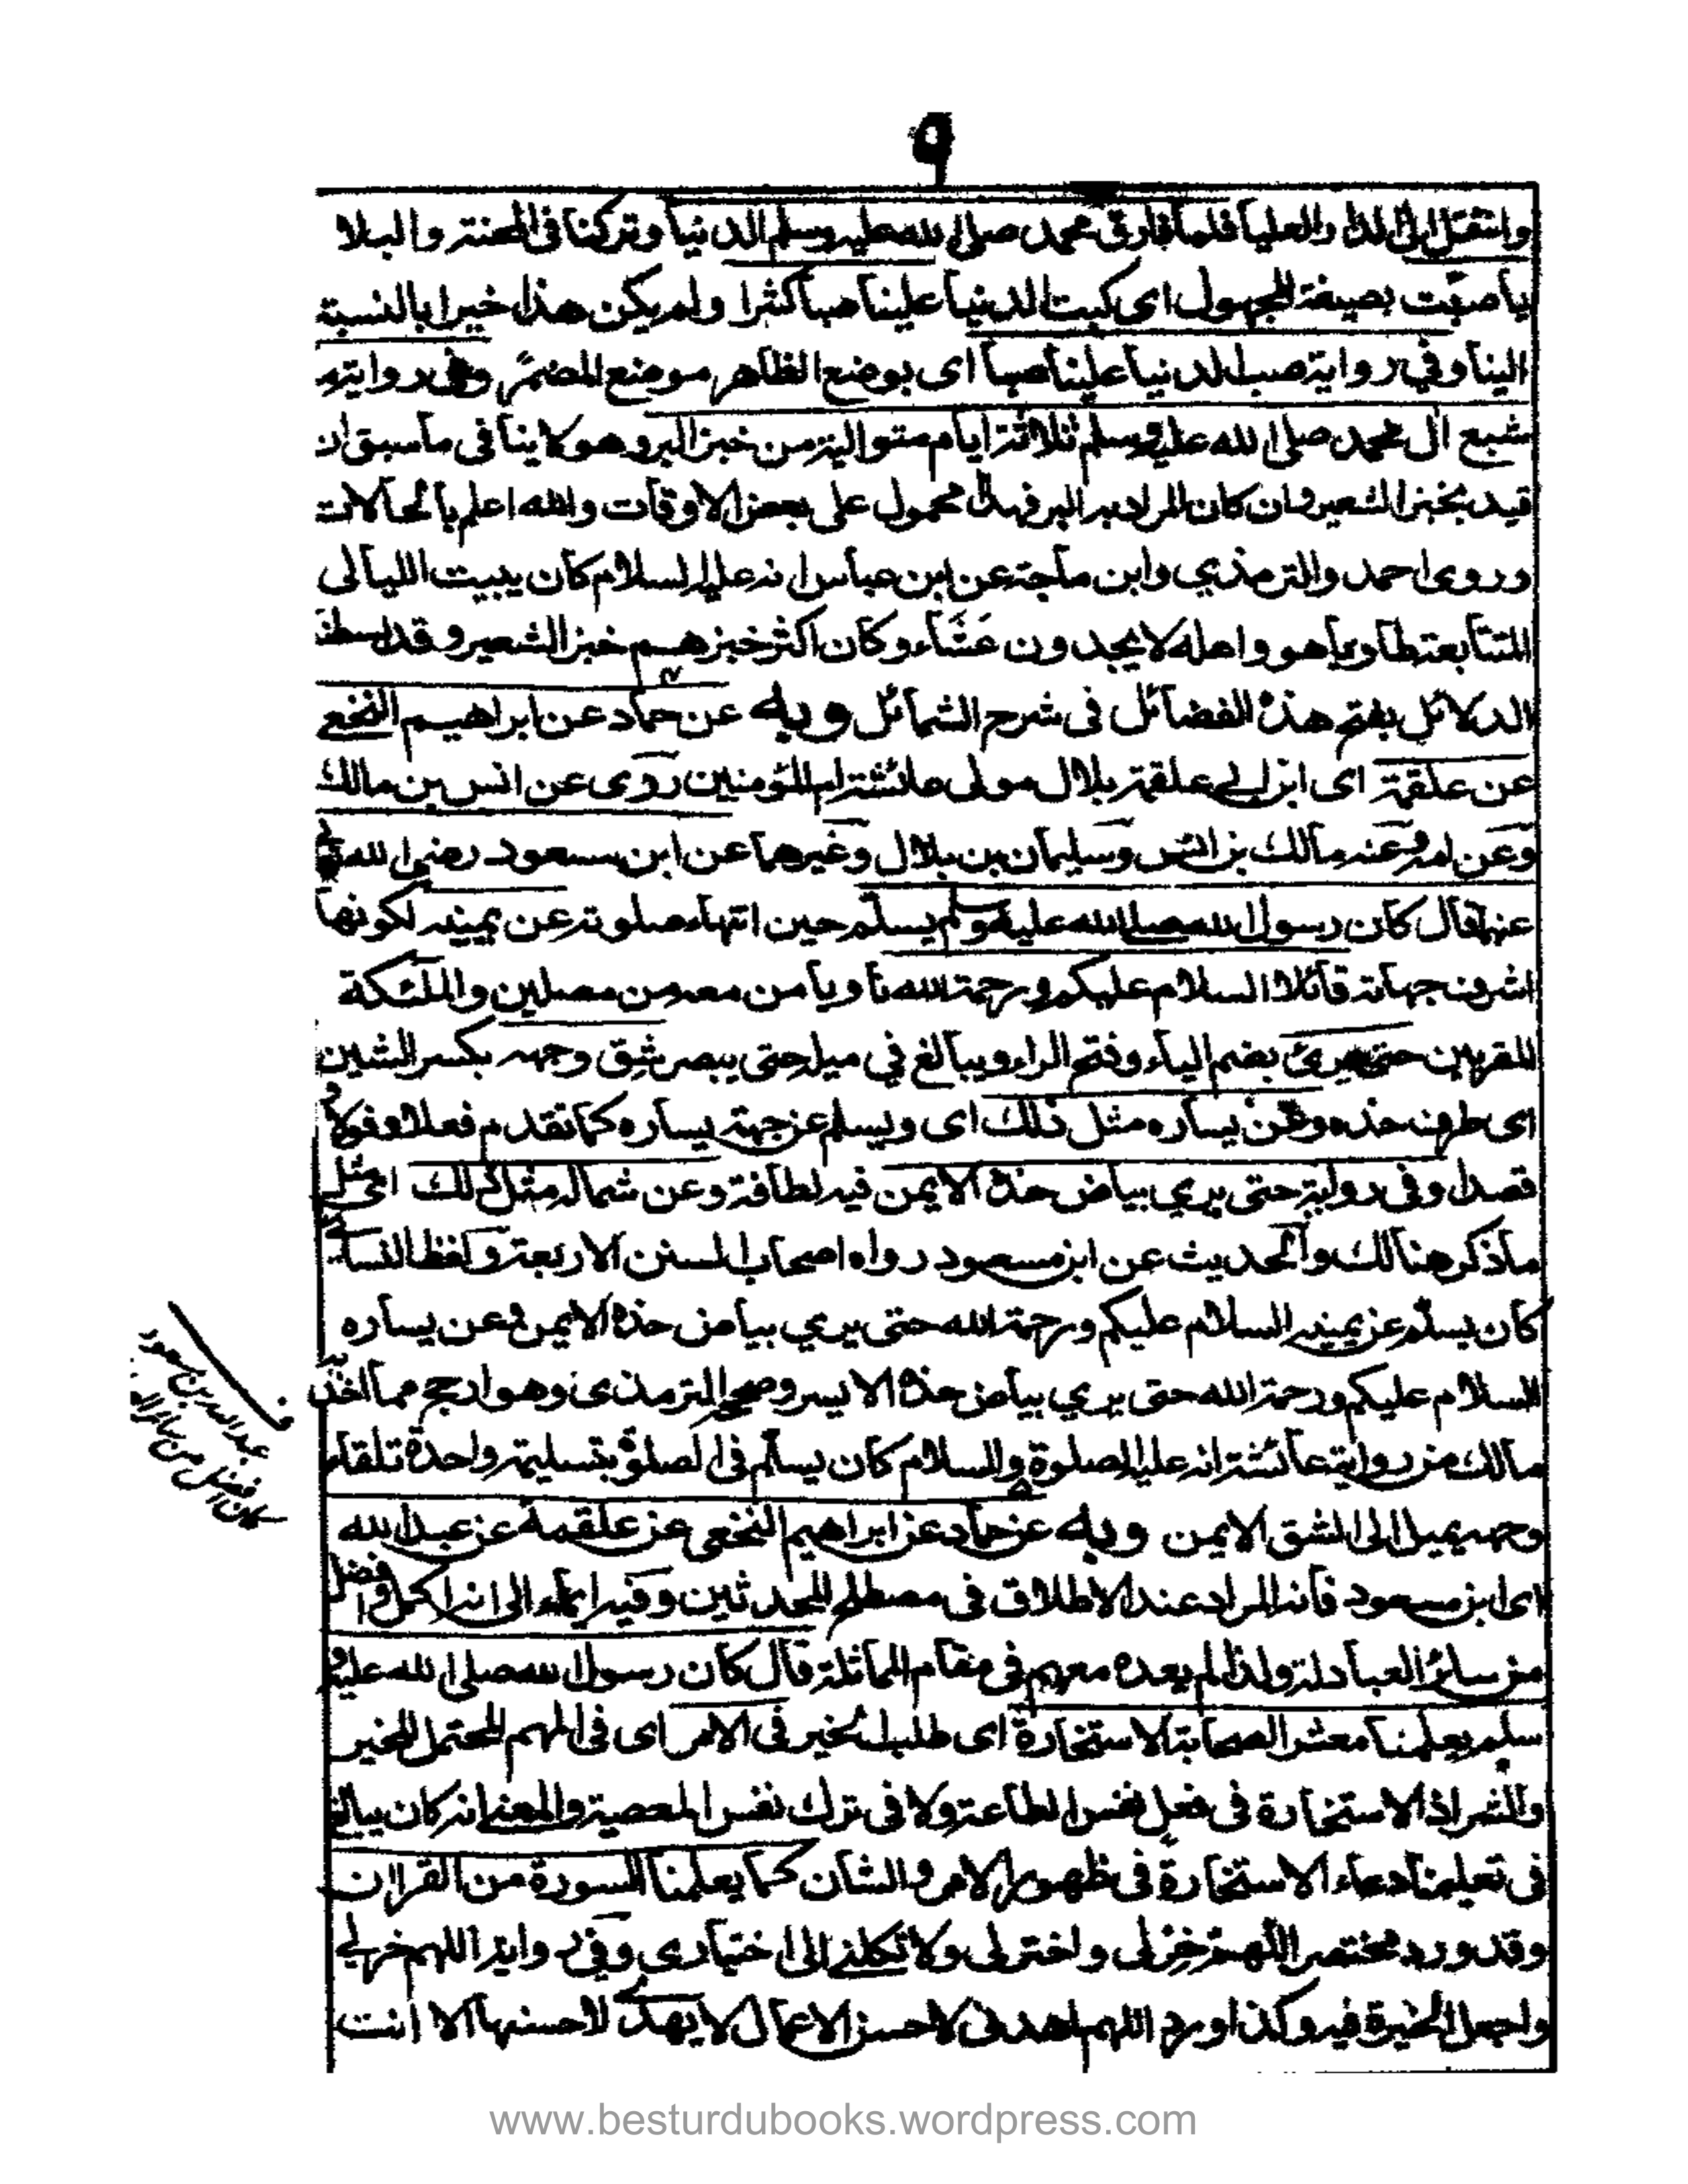 ٩
وانتقل الى الدار العليا فلما فارق محمد صلى الله عليه وسلم الدنيا وتركنا في المحنة والبلا
يا صبت بصيغة المجهول اى كبت الدنيا علينا صبا كثيرا ولم يكن هذا خيرا بالنسبة
الينا وفي رواية صب الدنيا علينا صبا اى بوضع الظاهر موضع المضمر وفي رواية ما
شبع ال محمد صلى الله عليه وسلم ثلاثة ايام متوالية من خبز البر وهو لا ينافى ما سبق ان
قيد بخبز الشعير وان كان المراد به البر فهذا محمول على بعض الاوقات والله اعلم بالحالات
وروى احمد والترمذي وابن ماجة عن ابن عباس انه عليه السلام كان يبيت الليالى
المتتابعة طاويا هو واهله لا يجدون عَشَاء وكان اكثر خبزهم خبز الشعير وقد بسطنا
الدلائل بفتح هذه الفضائل فى شرح الشمائل وبه عن حماد عن ابراهيم النخعي
عن علقمة اى ابن ابي علقمة بلال مولى عائشة ام المؤمنين روى عن انس بن مالك
وعن امه وعنه مالك بن انس وسليمان بن بلال وغيرهما عن ابن مسعود رضي الله
عنه قال كان رسول الله صلى الله عليه وسلم يسلم حين انتهاء صلوته عن يمينه لكونها
اشرف جهاته قائلا السلام عليكم ورحمة الله ناويا من معه من مصلين والملئكة
المقربين حتى يرى بضم الياء وفتح الراء ويبالغ في ميله حتى يبصر شق وجهه بكسر الشين
اى طرف خده وعن يساره مثل ذلك اى ويسلم عن جهة يساره كما تقدم فعلا وقولا و
قصدا وفى رواية حتى يري بياض خده الايمن فيه لطافة وعن شماله مثل ذلك اى مثل
ما ذكر هنالك والحديث عن ابن مسعود رواه اصحاب السنن الاربعة ولفظ النسائي
كان يسلم عن يمينه السلام عليكم ورحمة الله حتى يري بياض خده الايمن وعن يساره
السلام عليكم ورحمة الله حتى يري بياض خده الايسر وصححه الترمذى وهو ارجح مما اخذ به
مالك من رواية عائشة انه عليه الصلوة والسلام كان يسلم فى الصلوة بتسليمة واحدة تلقاء
وجهه يميل الى الشق الايمن وبه عن حماد عن ابراهيم النخعي عن علقمة عن عبد الله
اى ابن مسعود فانه المراد عند الاطلاق فى مصطلح المحدثين وفيه ايماء الى انه اكمل وافضل
من سائر العبادلة ولذا لم يعده معهم فى مقام المماثلة قال كان رسول الله صلى الله عليه و
سلم يعلمنا معشر الصحابة الاستخارة اى طلب الخير فى الامر اى فى المهم المحتمل للخير
والشر اذ الاستخارة فى فعل نفس الطاعة ولا فى ترك نفس المعصية والمعنى انه كان يبالغ
فى تعليمنا دعاء الاستخارة فى ظهور الامر والشان كما يعلمنا السورة من القران
وقد ورد مختصر اللهم خر لى واختر لى ولا تكلني الى اختيارى وفي رواية اللهم خر لي
واجعل الخيرة فيه وكذا ورد اللهم اهدنى لاحسن الاعمال لا يهدي لاحسنها الا انت
ف
عبد الله بن مسعود
افضل من سائر
www.besturdubooks.wordpress.com